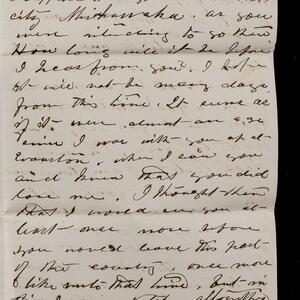 city Mishawaka. as you
were intending to go there
How long will it be before
I hear from you? I hope
it will not be many days
from this time. It seems as
if it were almost an age
since I was with you at
Evanston, when I saw you
and knew that you did
love me. I thought then
that I would see you at
least once more before
you would leave this part
of the country, one more
like unto that time, but in